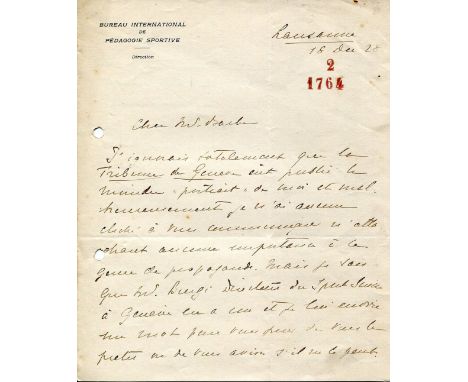 BUREAU INTERNATIONAL
DE
PÉDAGOGIE SPORTIVE
Direction
Lausanne
18 Dec 28
2
1764
Cher M.
J'ignorais totalement que la
Tribune de Genève eut publié le
moindre "portrait" de moi et mal-
heureusement je n'ai aucun
cliché à vous communiquer n'atta
chant aucune importance à ce
genre de propagande. Mais je sais
que M. Directeur du Sport Suisse
à Genève en a un et je lui envoie
un mot pour vous prier de vous le
prêter ou de vous aviser s'il ne le peut.